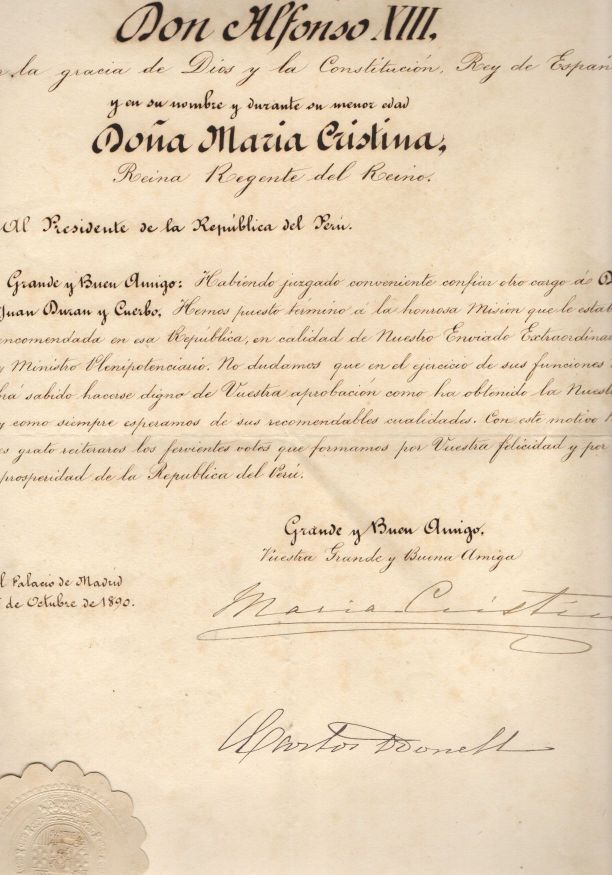 Don Alfonso XIII.
la gracia de Dios y la Constitución, Rey de Españ
y en su nombre y durante su menor edad
Doña Maria Cristina,
Reina Regente del Reino.
Al Presidente de la República del Perú.
Grande y Buen Amigo: Habiendo juzgado conveniente confiar otro cargo á D
Juan Duran y Cuerbo, Hemos puesto término á la honrosa Mision que le estab
encomendada en esa República, en calidad de Nuestro Enviado Extraordinar
y Ministro Plenipotenciario. No dudamos que en el ejercicio de sus funciones
há sabido hacerse digno de Vuestra aprobación como ha obtenido la Nuest
y como siempre esperamos de sus recomendables cualidades. Con este motivo
es grato reiteraros los fervientes votos que formamos por Vuestra felicidad y por
prosperidad de la Republica del Perú.
Grande y Buen Amigo,
Vuestra Grande y Buena Amiga
l Palacio de Madrid
de Octubre de 1890.
Maria Cristin
Carlos O'Donell